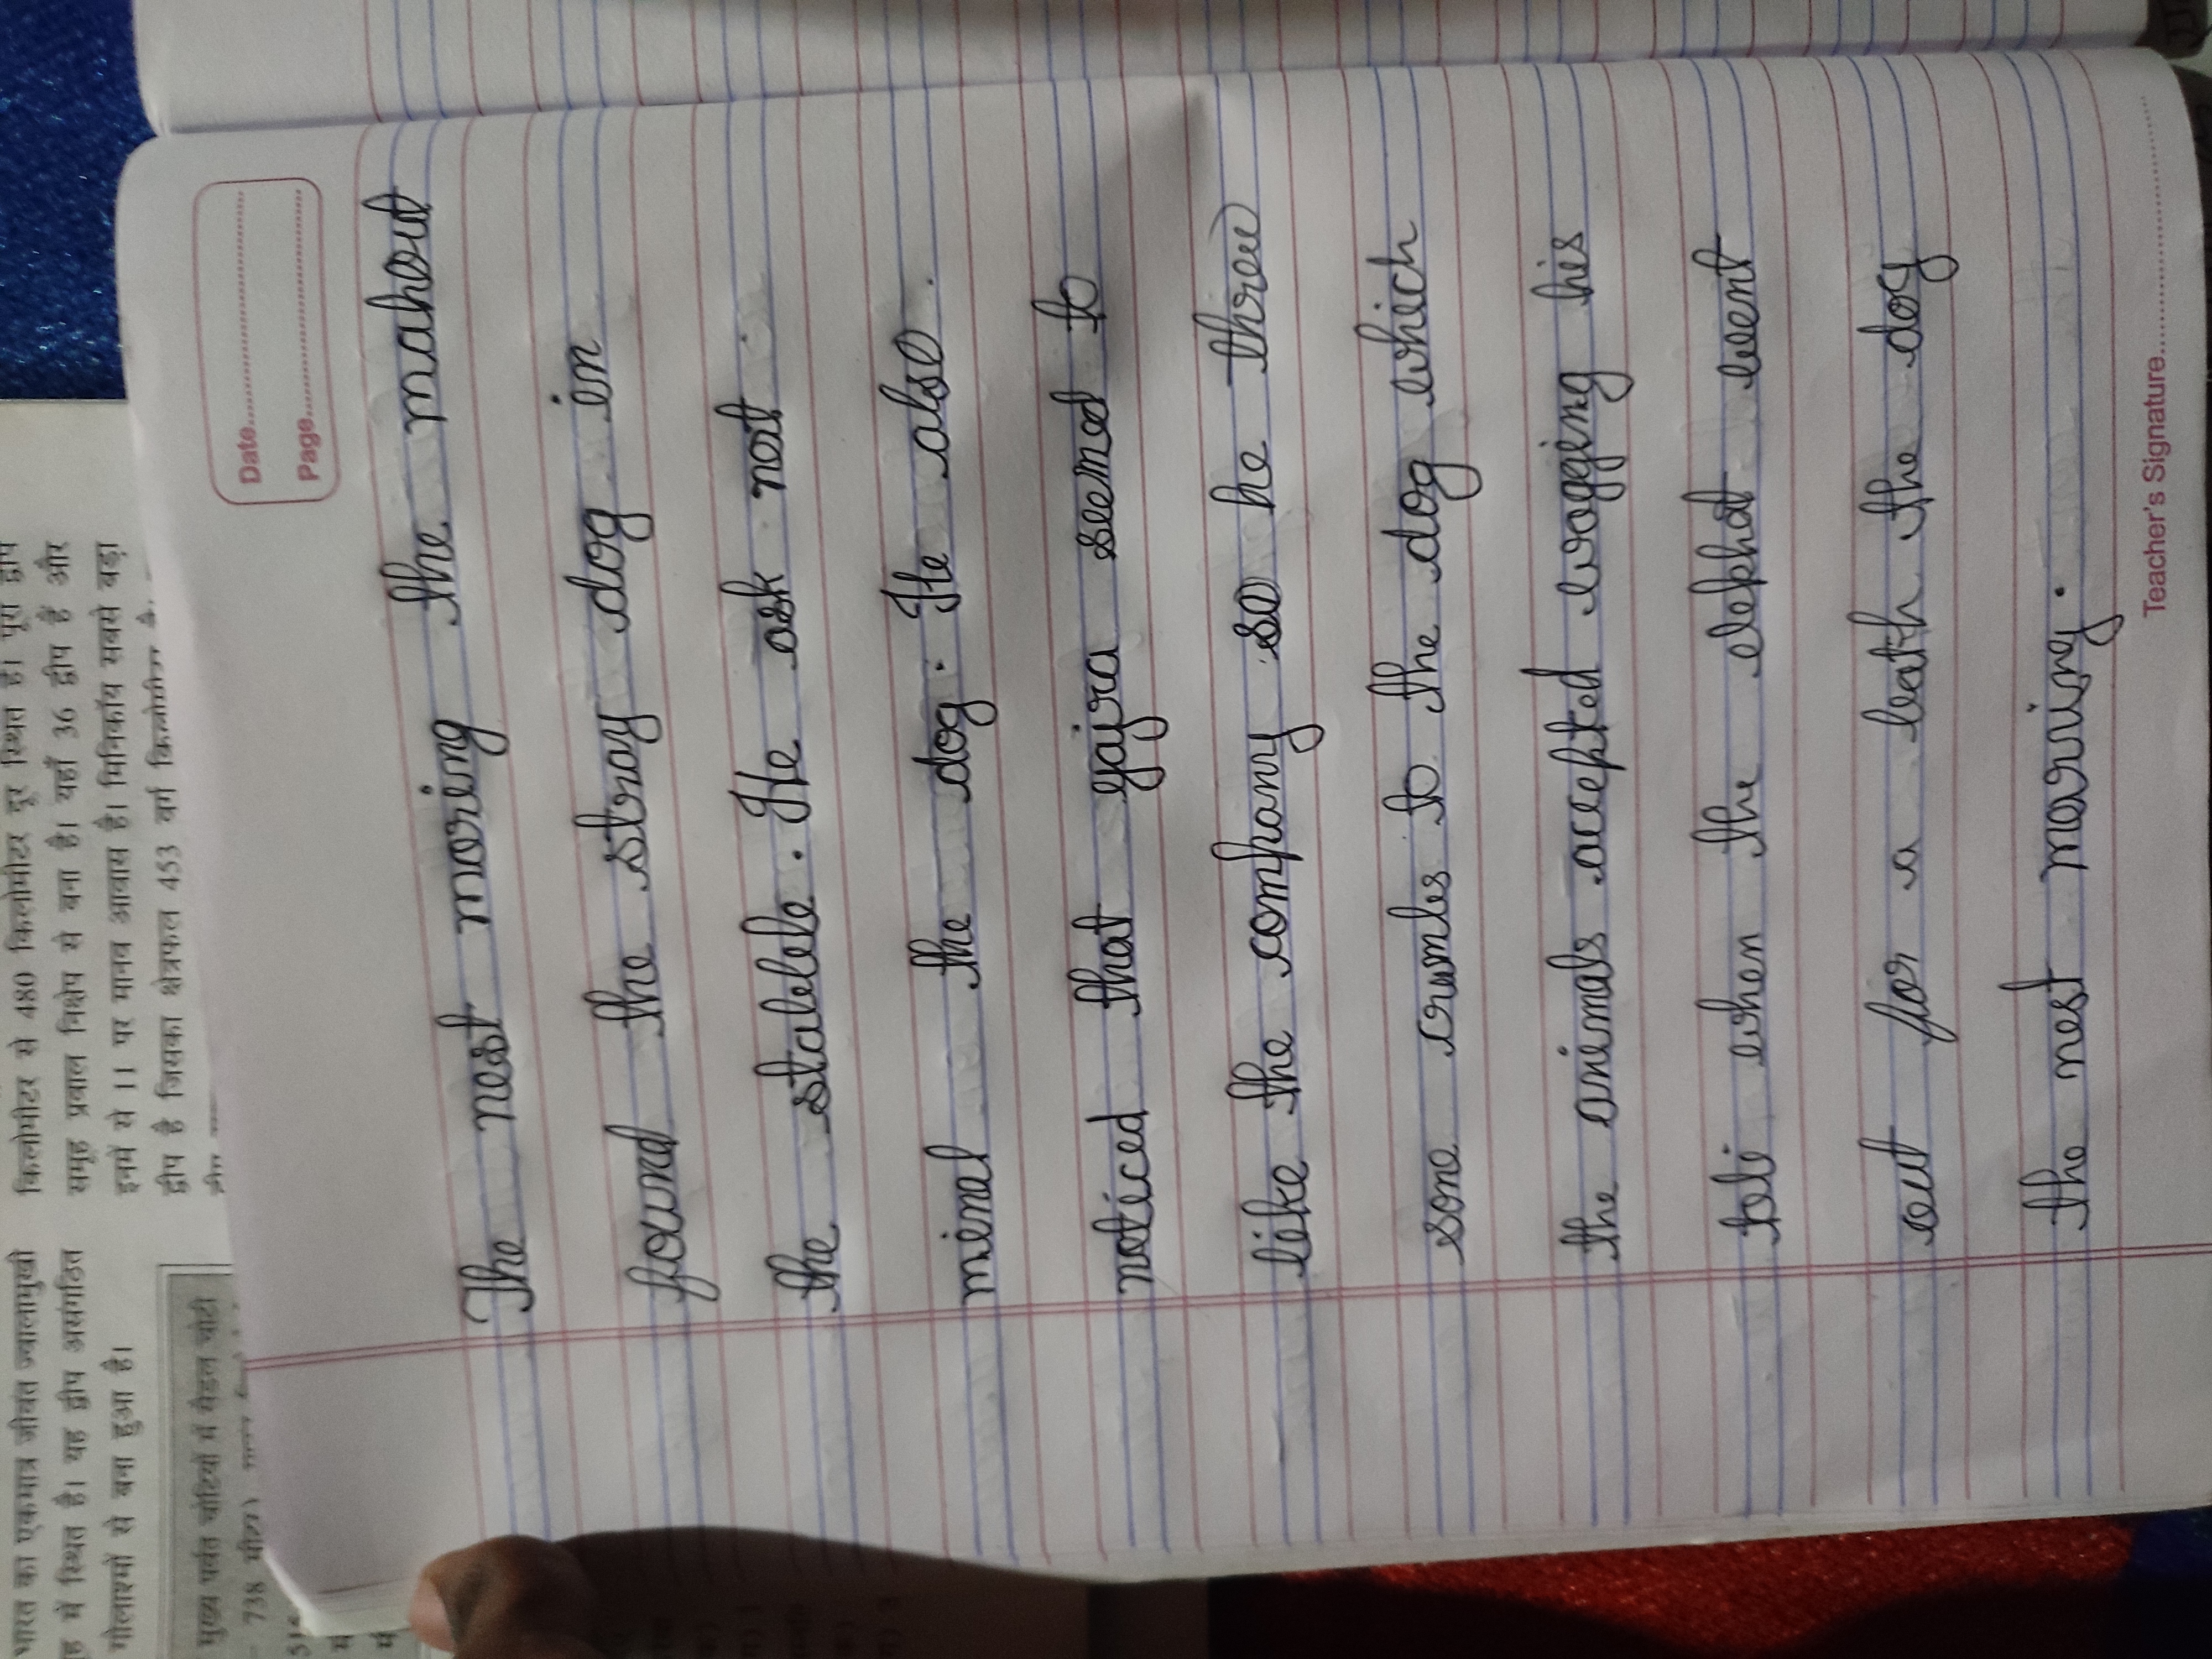 किलोमीटर से 480 किलोमीटर दूर स्थित है। पूरा द्वीप
समूह प्रवाल निक्षेप से बना है। यहाँ 36 द्वीप हैं और
इनमें से 11 पर मानव आवास है। मिनिकॉय सबसे बड़ा
द्वीप है जिसका क्षेत्रफल 453 वर्ग
भारत का एकमात्र जीवंत ज्वालामुखी
में स्थित है। यह द्वीप असंगठित
गोलाश्मों से बना हुआ है।
मुख्य पर्वत चोटियों में सैडल चोटी
738
Date
Page
The nest moring the mahout
found the stray dog in
the stablele. He ask not
minal the dog. He also.
noticed that gajra seemed to
like the company so he threw
some crumles to the dog which
the animals accepted wogging his
teli when the elephat went
out for a bath the dog
the nest morning.
Teacher's Signature